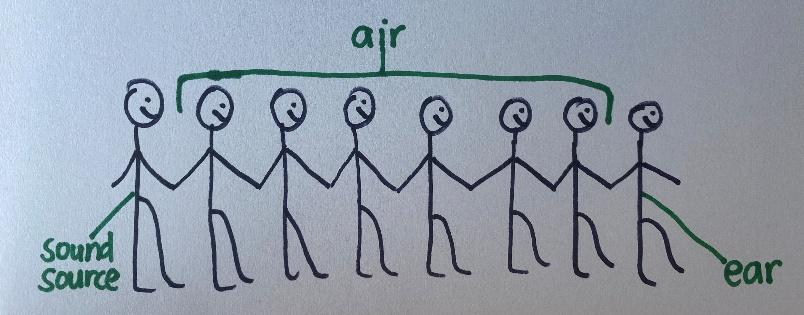 air
sound
source
ear